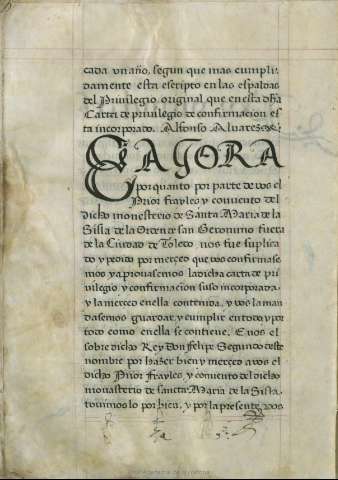 cada vn año, segun que mas cumpli
damente esta escripto en las espaldas
del Preuilegio original que en esta dha
Carta de priuilegio de confirmacion es
ta incorporado. Alfonso Aluarez
E AGORA
Por quanto por parte de vos el
Prior frayles y conuento del
dicho monesterio de Santa Maria de la
Sisla de la Orden de san Geronimo fuera
de la Ciudad de Toledo, nos fue suplica
do y pedido por merced que vos confirmase
mos y aprouasemos la dicha carta de pri
uilegio y confirmacion suso incorporada,
y la merced en ella contenida, y vos la man
dasemos guardar, y cumplir en todo y por
todo como en ella se contiene. E nos el
sobredicho Rey Don Felipe Segundo deste
nombre por hazer bien y merced a vos el
dicho Prior Frayles, y conuento del dicho
monasterio de sancta Maria de la Sisla,
touimos lo por bien, y por la presente vos